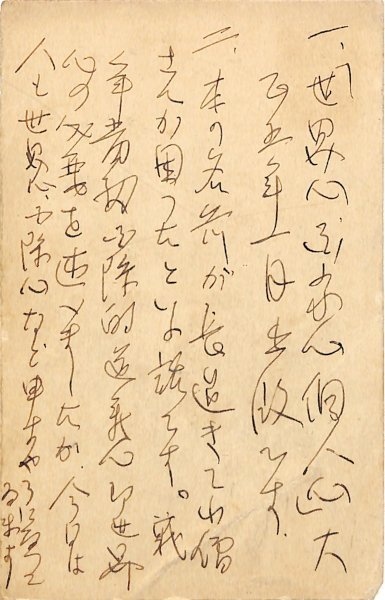 一、世界心国家心個人心大
正五年一月出版です
二、本の名前が長過きて小僧
さんが困つたといふ話です。我
年前初め国際的道義心即世界
心の必要を述べましたが、今日は
人も世界心国際心など申すやうになつて
ゐます